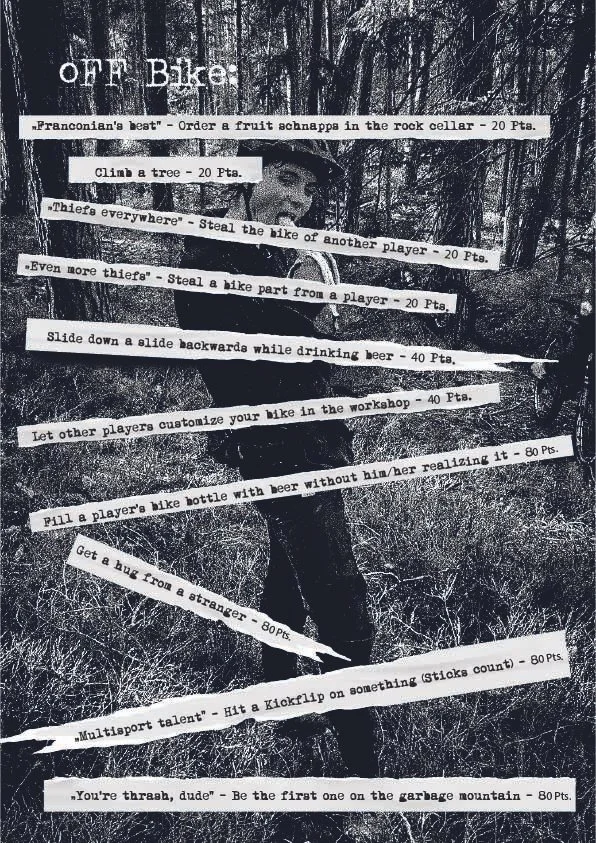 oFF Bike:
„Franconian's best" - Order a fruit schnapps in the rock cellar - 20 Pts.
Climb a tree - 20 Pts.
„Thiefs everywhere" - Steal the bike of another player - 20 Pts.
„Even more thiefs" - Steal a bike part from a player - 20 Pts.
Slide down a slide backwards while drinking beer - 40 Pts.
Let other players customize your bike in the workshop - 40 Pts.
Fill a player's bike bottle with beer without him/her realizing it - 80 Pts.
Get a hug from a stranger - 80 Pts.
„Multisport talent" - Hit a Kickflip on something (Sticks count) - 80 Pts.
„You're thrash, dude" - Be the first one on the garbage mountain - 80 Pts.